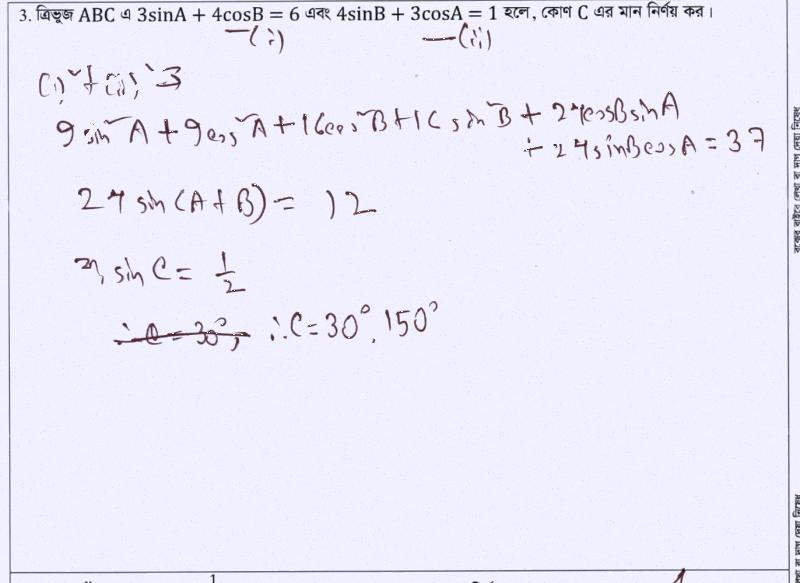 3. ত্রিভুজ ABC এ 3sinA + 4cosB = 6 এবং 4sinB + 3cosA = 1 হলে, কোণ C এর মান নির্ণয় কর।
—(i) —(ii)
(i)² + (ii)² ⇒
9 sin²A + 9cos²A + 16cos²B + 16 sin²B + 24cosBsinA
+ 24sinBcosA = 37
24 sin(A+B) = 12
বা, sin C = 1/2
∴C = 30°, 150°